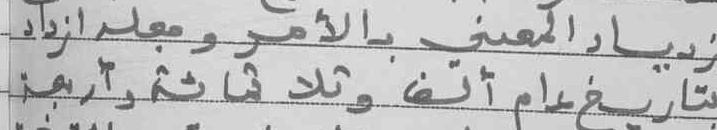 ازدياد المعني بالأمر ومحله ازداد
بتاريخ عام ألف وثلاثمائة وأربعة